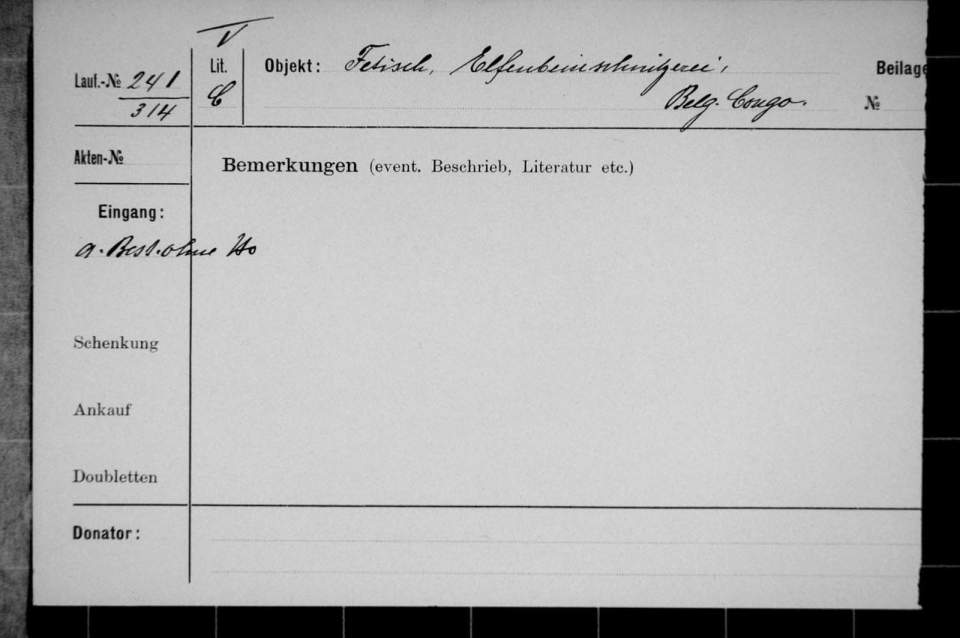 V
Lauf.-№ 241
314
Lit.
C
Objekt: Fetisch, Elfenbeinschnitzerei,
Belg. Congo.
Beilage
№
Akten-№
Bemerkungen (event. Beschrieb, Literatur etc.)
Eingang:
a. Best. ohne No
Schenkung
Ankauf
Doubletten
Donator: